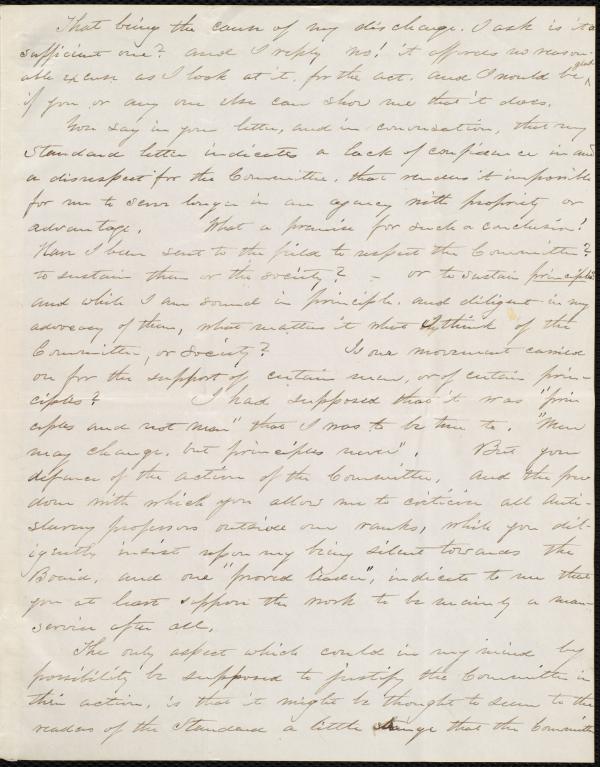 That being the cause of my discharge. I ask is it a
sufficient one? and I reply no! it affords no reason-
able excuse as I look at it, for the act. and I would be glad
if you or any one else can show me that it does.
You say in your letter, and in conversation, that my
Standard letter indicates a lack of confidence in and
a disrespect for the Committee, that renders it impossible
for me to serve longer in an agency with propriety or
advantage. What a premise for such a conclusion!
Have I been sent to the field to respect the Committee?
to sustain them or the society? - or to sustain principles?
and while I am sound in principle, and diligent in my
advocacy of them, what matters it what I think of the
Committee, or Society? Is our movement carried
on for the support of certain men, or of certain prin-
ciples? I had supposed that it was "prin
ciples and not men" that I was to be true to. "Men
may change, but principles never". But your
defence of the action of the Committee, and the free
dom with which you allow me to criticise all Anti-
slavery professors outside our ranks, while you dil-
igently insist upon my being silent towards the
Board, and our "proved leaders", indicate to me that
you at least suppose the work to be mainly a man
service after all.
The only aspect which could in my mind by
possibility be supposed to justify the Committee in
their action, is that it might be thought to seem to the
readers of the Standard a little strange that the Committee